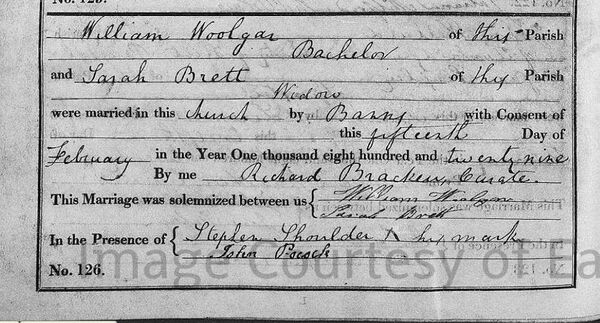 No. 125.
William Woolgar of this Parish
Bachelor
and Sarah Brett of this Parish
Widow
were married in this church by Banns with Consent of
this fifteenth Day of
February in the Year One thousand eight hundred and twenty nine
By me Richard Bracken, Curate.
This Marriage was solemnized between us { William Woolgar
Sarah Brett
In the Presence of { Stephen Shoulder X his mark
John Pocock
No. 126.
Image Courtesy of Ea